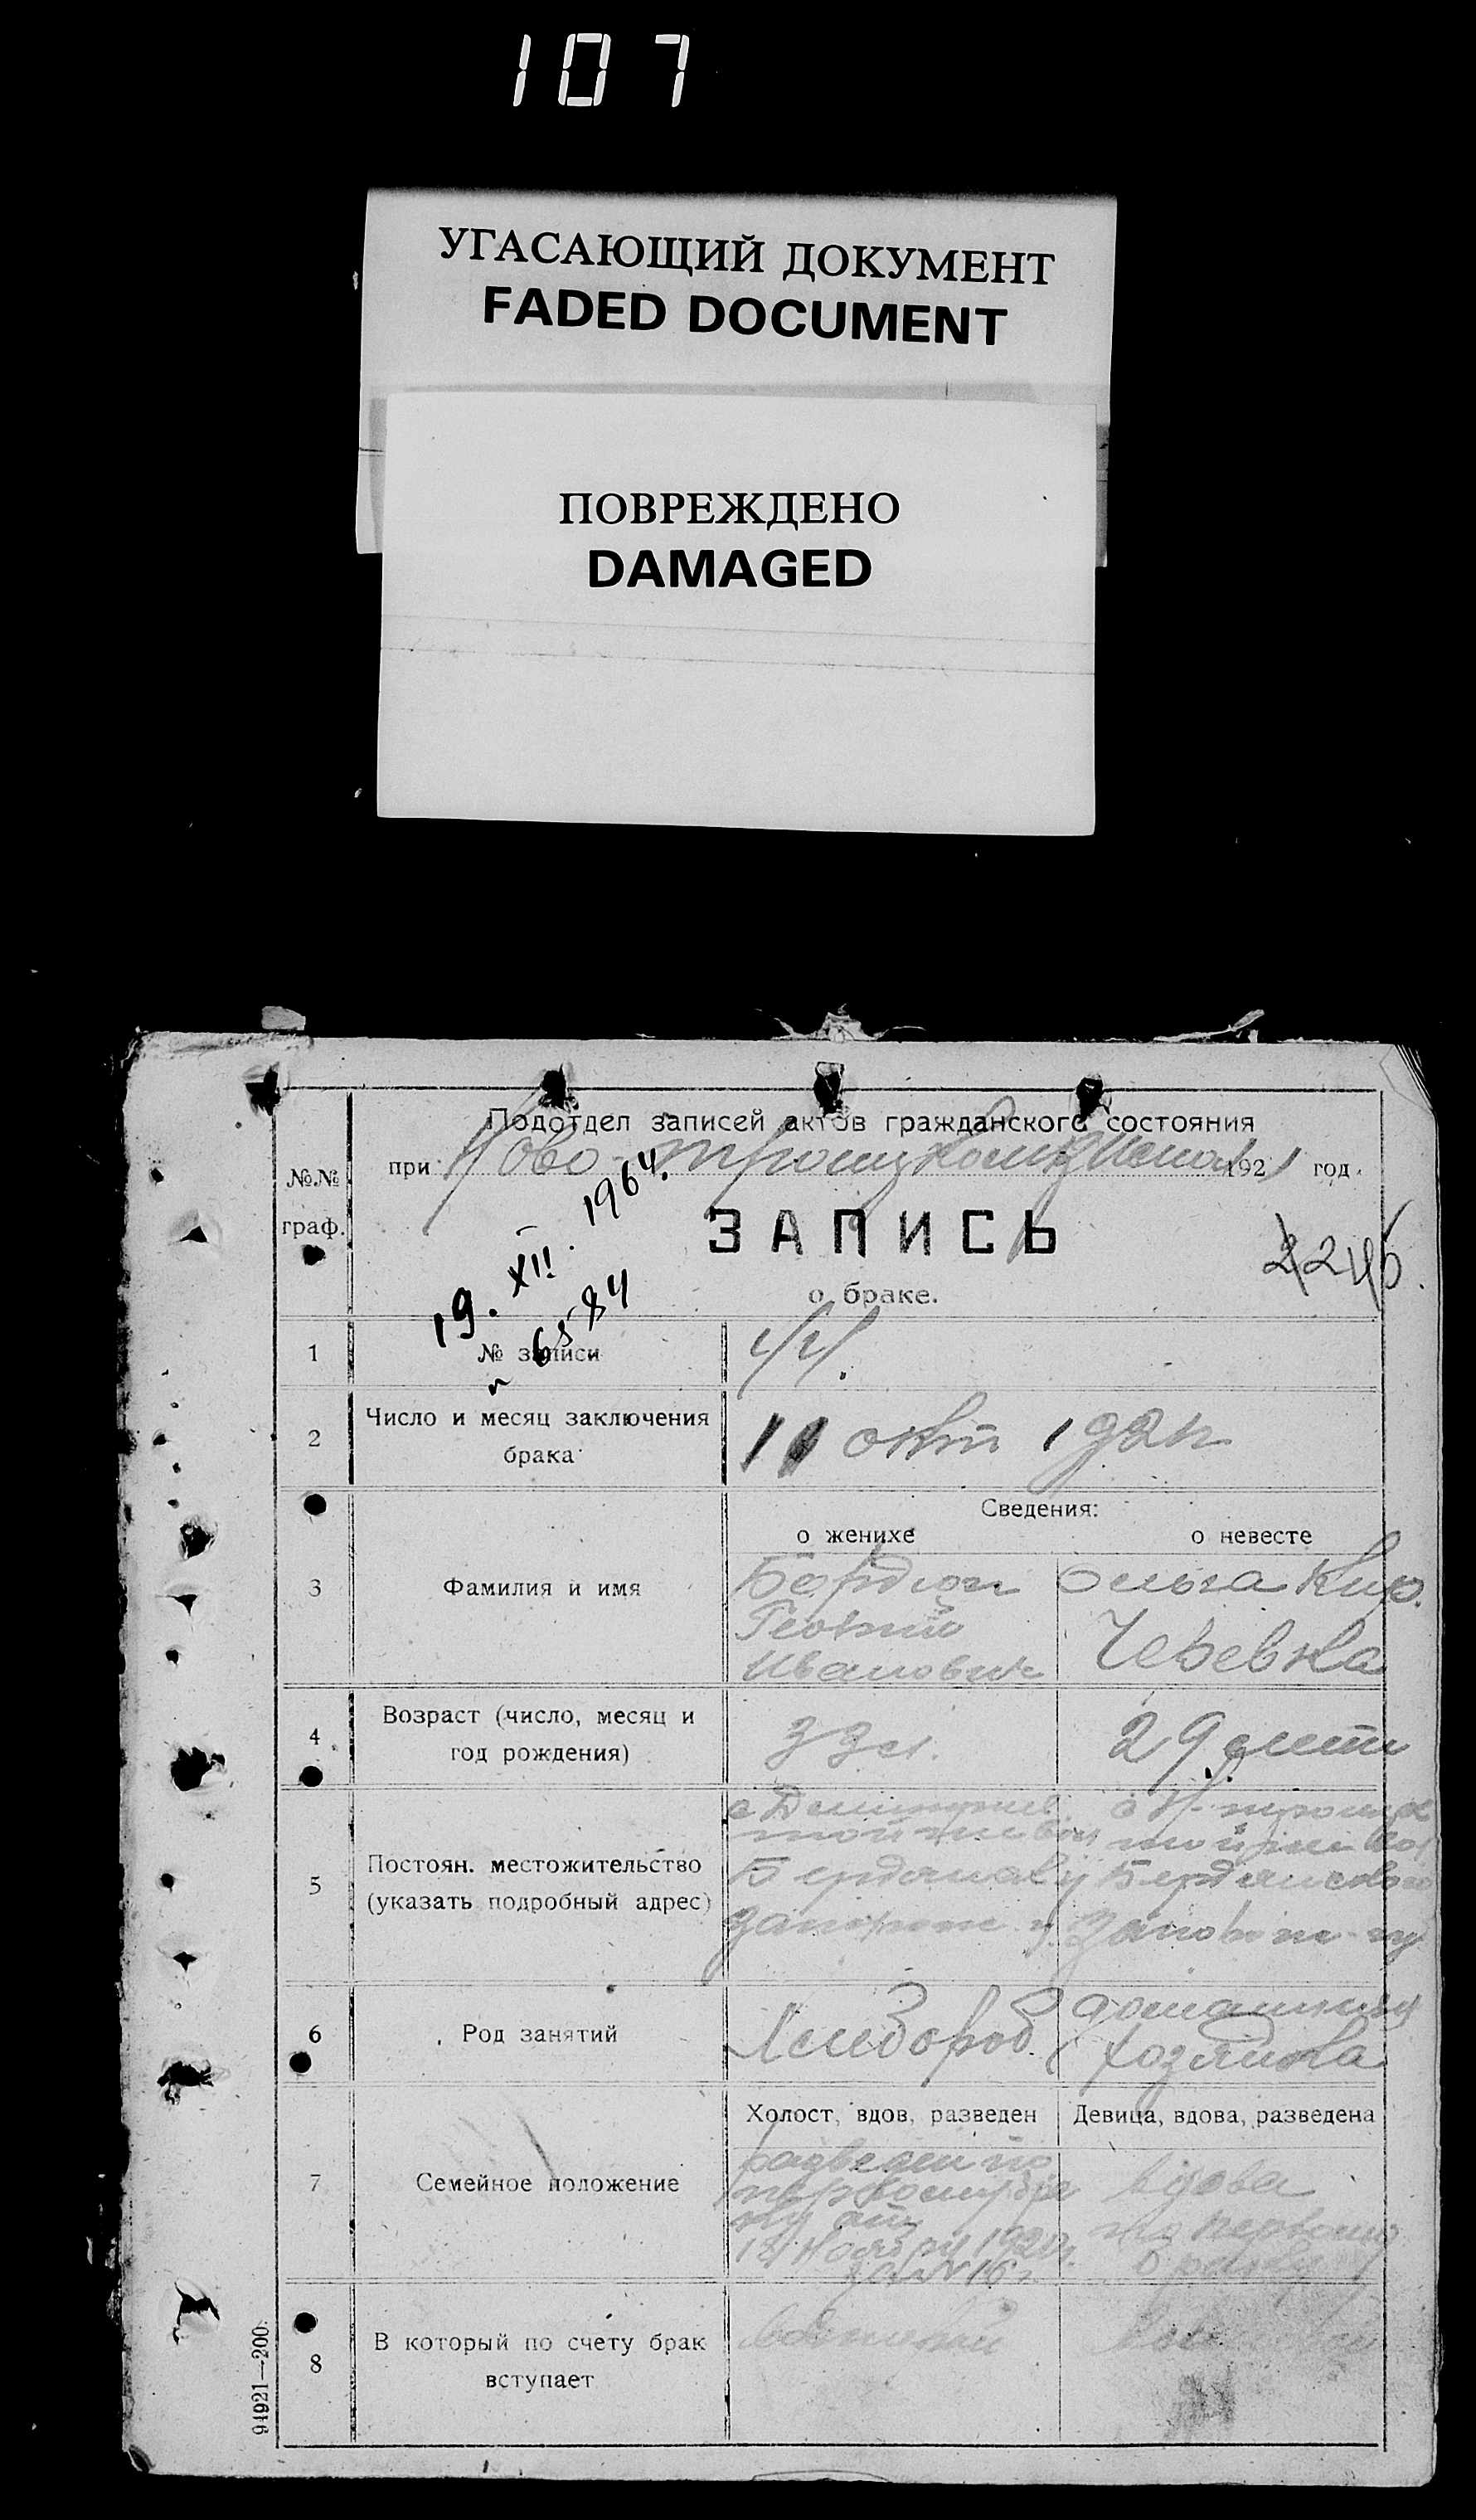 107
УГАСАЮЩИЙ ДОКУМЕНТ
FADED DOCUMENT
ПОВРЕЖДЕНО
DAMAGED
Подотдел записей актов гражданского состояния
№№ граф.
при Ново-троицком 1921 год.
ЗАПИСЬ
о браке.
19. XII. 1964.
№ 6584
2245.
1 № записи 44.
2 Число и месяц заключения брака 11 окт 1921г
Сведения:
о женихе о невесте
3 Фамилия и имя
Георгий Ольга Кир.
Иванович
4 Возраст (число, месяц и год рождения) 33 л. 29 лет
5 Постоян. местожительство (указать подробный адрес)
с с Н-троицк
той же вол той же вол
Бердянск у Бердянского
Запорож. г. Запорож. гу
6 Род занятий
Хлебороб домашняя
хозяйка
Холост, вдов, разведен Девица, вдова, разведена
7 Семейное положение
разведен по вдова
первому бра по первому
браку
18 Ноября 1920г.
за № 16
8 В который по счету брак вступает
во второй
94921—200.